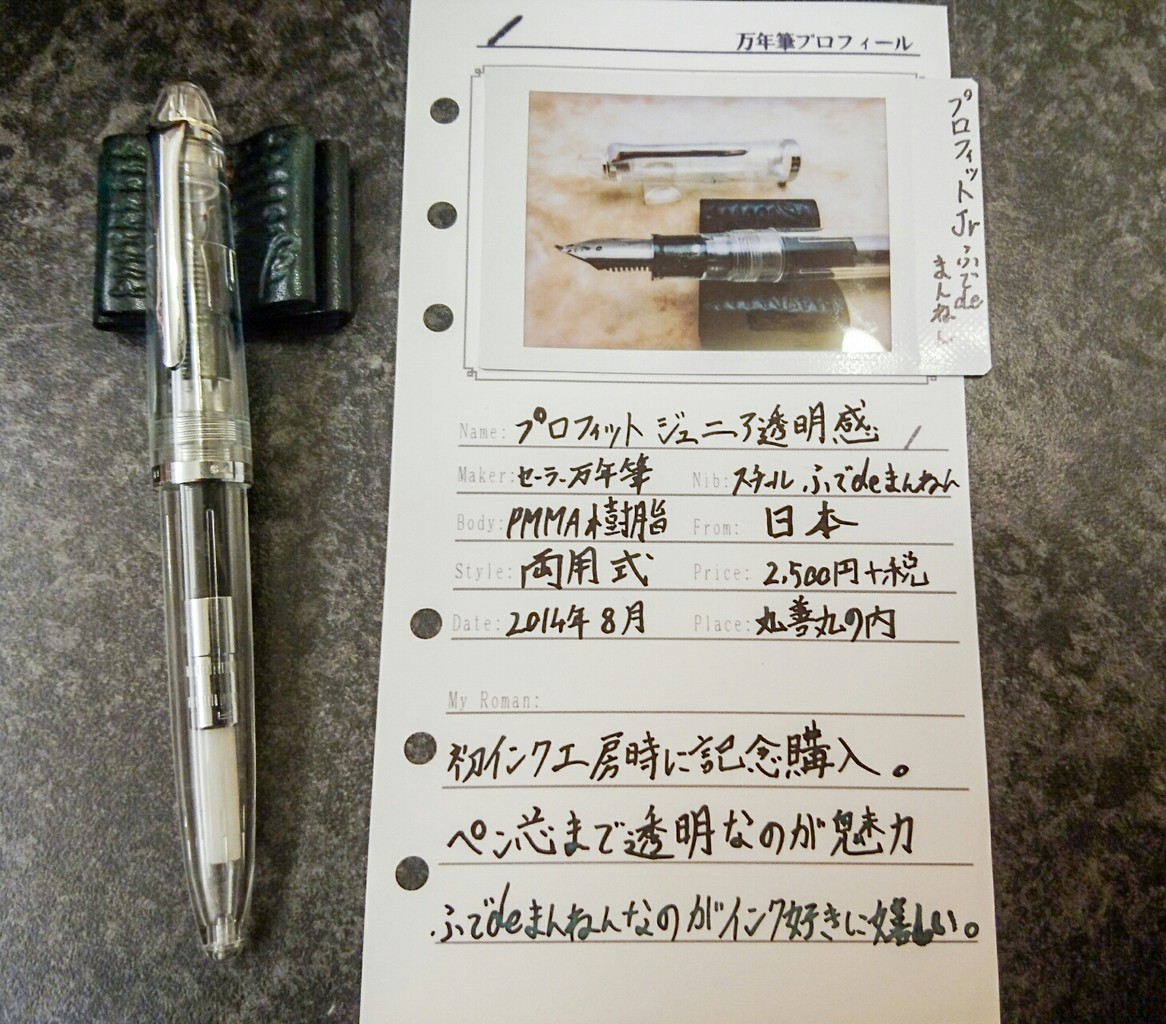 万年筆プロフィール
プロフィットJrふでde
まんねん
Name: プロフィットジュニア透明感
Maker: セーラー万年筆 Nib: スチール ふでdeまんねん
Body: PMMA樹脂 From: 日本
Style: 両用式 Price: 2,500円+税
Date: 2014年8月 Place: 丸善丸の内
My Roman:
初インク工房時に記念購入。
ペン芯まで透明なのが魅力
ふでdeまんねんなのがインク好きに嬉しい。